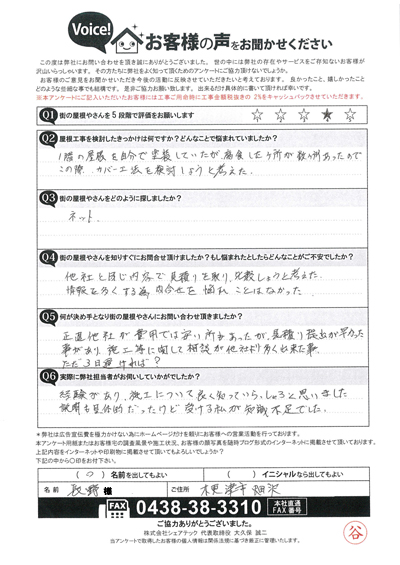 Voice!
お客様の声をお聞かせください
この度は弊社にお問い合わせを頂き誠にありがとうございました。世の中には弊社の存在やサービスをご存知ないお客様が
沢山いらっしゃいます。その方たちに弊社をよく知って頂くためのアンケートにご協力頂けないでしょうか。
お客様のご意見をお聞かせいただき今後の活動に反映させていただきたいと考えております。良かったこと、嬉しかったこと
どのような些細な事でも結構です。是非ご協力お願い致します。出来るだけ具体的に書いて頂ければ幸いです。
※本アンケートにご記入いただいたお客様には工事ご用命時に工事金額税抜きの 2%をキャッシュバックさせていただきます。
Q1 街の屋根やさんを5段階で評価をお願いします ☆ ☆ ☆ ★ ☆
Q2 屋根工事を検討したきっかけは何ですか?どんなことで悩まれていましたか?
1階の屋根を自分で塗装していたが、腐食した所が数ヶ所あったので
この際 カバー工法を検討しようと考えた。
Q3 街の屋根やさんをどのように探しましたか?
ネット
Q4 街の屋根やさんを知りすぐにお問合せ頂けましたか?もし悩まれたとしたらどんなことがご不安でしたか?
他社と同じ内容で見積りを取り、比較しようと考えた。
情報を多くする為、問合せを悩むことはなかった。
Q5 何が決め手となり街の屋根やさんにお問い合わせ頂きましたか?
正直他社が費用では安い所もあったが、見積り提出が早かった
事があり、施工等に関して相談が他社より多く出来た事。
ただ3日過ければ?
Q6 実際に弊社担当者がお伺いしていかがでしたか?
経験があり、施工について良く知っていらっしゃると思いました
説明も具体的だったけど 受ける私が知識不足でした。
*弊社は広告宣伝費を極力かけない為にホームページだけを頼りにお客様への営業活動を行っております。
本アンケート用紙またはお客様宅の調査風景や施工状況、お客様の顔写真を随時ブログ形式のインターネットに掲載させて頂いております。
上記内容をインターネットや印刷物に掲載させて頂いてもよろしいでしょうか?
下記の中から〇印をお付下さい。
( 〇 )名前を出してもよい ( )イニシャルなら出してもよい
名前 長野 様 ご住所 木更津市畑沢
FAX 0438-38-3310 本社直通 FAX番号
ご協力ありがとうございました。
株式会社シェアテック 代表取締役 大久保 誠二
当アンケートで取得したお客様の個人情報は関係法規に基づき厳正に管理いたします。
谷